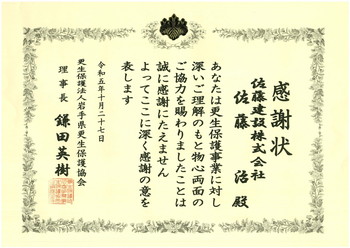 感謝状
佐藤建設株式会社
佐藤 治 殿
あなたは更生保護事業に対し
深いご理解のもと物心両面の
ご協力を賜わりましたことは
誠に感謝にたえません
よってここに深く感謝の意を
表します
令和五年十月二十七日
更生保護法人岩手県更生保護協会
理事長 鎌田英樹